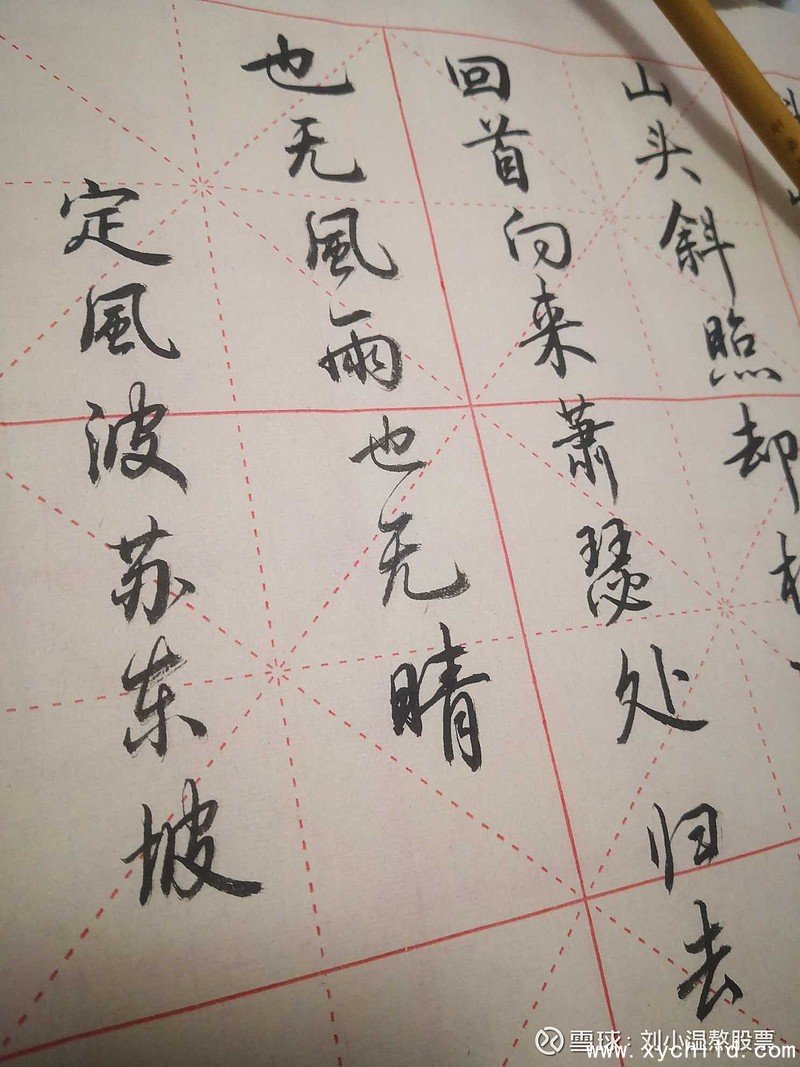 山头斜照却相
回首向来萧瑟处归去
也无風雨也无晴
定風波苏东坡
雪球：刘小温熬股票
www.xychild.com